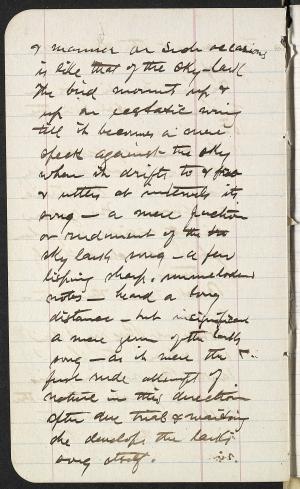 & manner on such occasions
is like that of the sky-lark
The bird mounts up &
up on ecstatic wing
till it becomes a mere
speck against the sky
when it drifts to & fro
& utters at intervals its
song — a mere fraction
or rudiment of the
sky larks song — a few
lisping sharp, unmelodious
notes — heard a long
distance — but insignificant
a mere germ of the larks
song — as it were the
first rude attempt of
nature in this direction
After due trial & waiting
she develops the lark's
song itself.